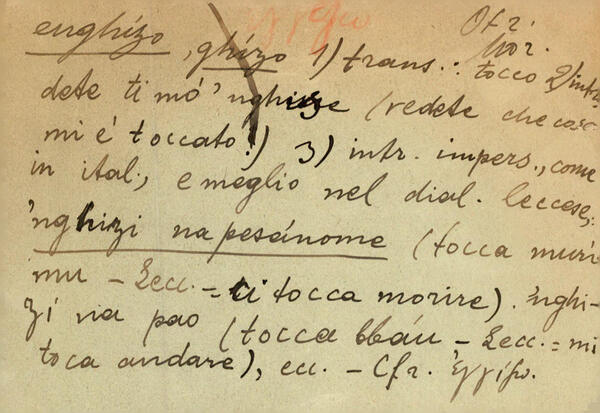 ἐγγίζω
Otr.
Mor.
enghízo, ghízo 1) trans.: tocco 2) intr.
dete ti mó 'nghise (vedete che cosa
mi é toccato!) 3) intr. impers., come
in ital., e meglio nel dial. leccese;
'nghizi na pesánome (tocca muri
mu - Lecc. = ti tocca morire). 'nghi-
zí na pao (tocca bbáu - Lecc. = mi
toca andare), ecc. - Cfr. ἐγγίζω.